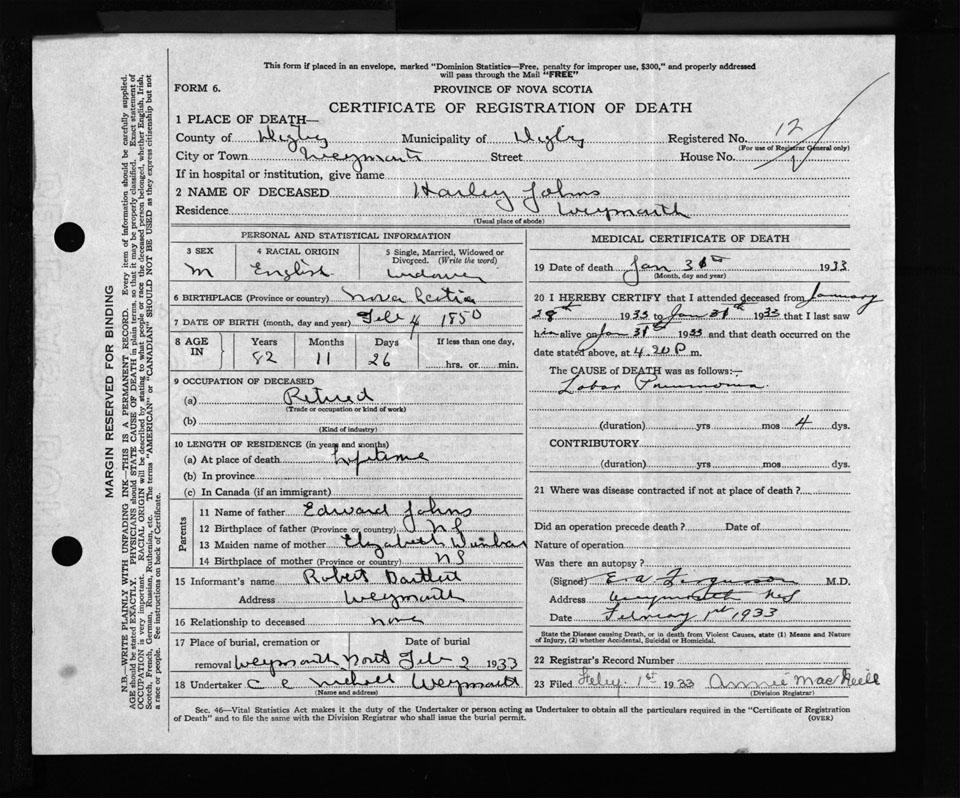 This form if placed in an envelope, marked "Dominion Statistics—Free, penalty for improper use, $300," and properly addressed
will pass through the Mail "FREE"
FORM 6.
PROVINCE OF NOVA SCOTIA
CERTIFICATE OF REGISTRATION OF DEATH
1 PLACE OF DEATH—
County of Digby Municipality of Digby Registered No. 12
(For use of Registrar General only)
City or Town Weymouth Street House No.
If in hospital or institution, give name
2 NAME OF DECEASED Harley Johns
Residence Weymouth
(Usual place of abode)
PERSONAL AND STATISTICAL INFORMATION
3 SEX 4 RACIAL ORIGIN 5 Single, Married, Widowed or
Divorced. (Write the word)
M English widower
6 BIRTHPLACE (Province or country) Nova Scotia
7 DATE OF BIRTH (month, day and year) Feb 4 1850
8 AGE IN Years Months Days If less than one day,
82 11 26 hrs. or min.
9 OCCUPATION OF DECEASED
(a) Retired
(Trade or occupation or kind of work)
(b)
(Kind of industry)
10 LENGTH OF RESIDENCE (in years and months)
(a) At place of death Lifetime
(b) In province
(c) In Canada (if an immigrant)
Parents
11 Name of father Edward Johns
12 Birthplace of father (Province or country) NS
13 Maiden name of mother Elizabeth
14 Birthplace of mother (Province or country) NS
15 Informant's name Robert Bartlett
Address Weymouth
16 Relationship to deceased none
17 Place of burial, cremation or Date of burial
removal Weymouth North Feb 2 1933
18 Undertaker C E Nichols Weymouth
(Name and address)
MEDICAL CERTIFICATE OF DEATH
19 Date of death Jan 1933
(Month, day and year)
20 I HEREBY CERTIFY that I attended deceased from January
28th 1933 to Jan 31st 1933 that I last saw
him alive on Jan 31st 1933 and that death occurred on
date stated above, at 4.20 P m.
The CAUSE of DEATH was as follows:—
Lobar Pneumonia
(duration) yrs mos 4 dys.
CONTRIBUTORY
(duration) yrs mos dys.
21 Where was disease contracted if not at place of death?
Did an operation precede death? Date of
Nature of operation
Was there an autopsy?
(Signed) Ferguson M.D.
Address Weymouth NS
Date February 1st 1933
State the Disease causing Death, or in death from Violent Causes, state (1) Means and Nature
of Injury, (2) whether Accidental, Suicidal or Homicidal.
22 Registrar's Record Number
23 Filed Feby. 1st 1933 Annie Mac
(Division Registrar)
Sec. 46—Vital Statistics Act makes it the duty of the Undertaker or person acting as Undertaker to obtain all the particulars required in the "Certificate of Registration
of Death" and to file the same with the Division Registrar who shall issue the burial permit. (OVER)
MARGIN RESERVED FOR BINDING
N.B.—WRITE PLAINLY WITH UNFADING INK—THIS IS A PERMANENT RECORD. Every item of information should be carefully supplied.
AGE should be stated EXACTLY. PHYSICIANS should STATE CAUSE OF DEATH in plain terms, so that it may be properly classified. Exact statement of
OCCUPATION is very important. RACIAL ORIGIN will be described by stating to what people or race the deceased person belonged, whether English, Irish,
Scotch, French, German, Russian, Ruthenian, etc. The terms "AMERICAN" or "CANADIAN" SHOULD NOT BE USED as they express citizenship but not
a race or people. See instructions on back of Certificate.